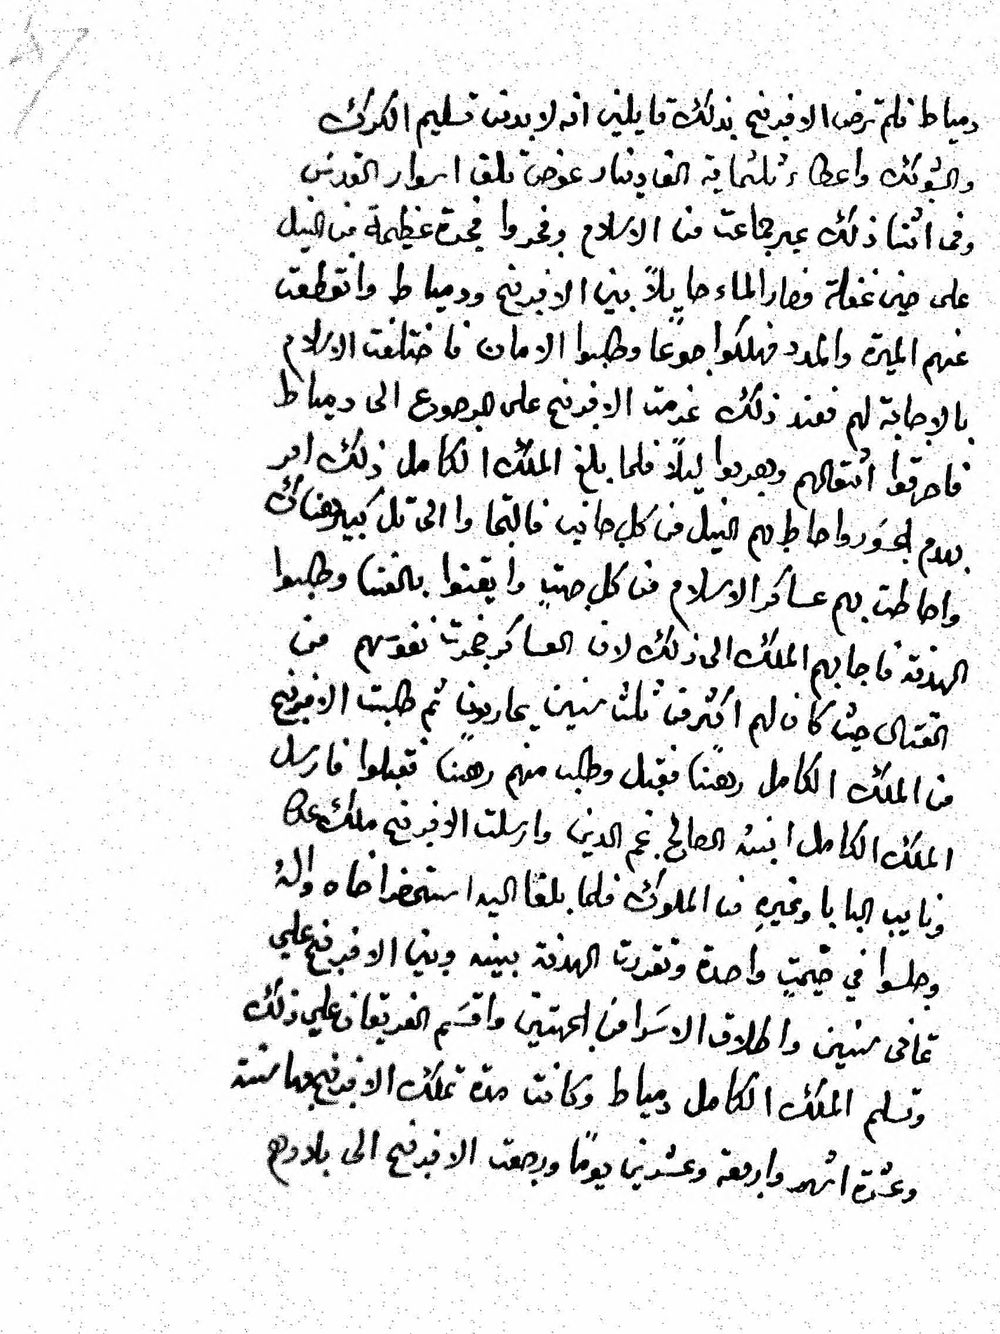 دمياط فلم ترض الافرنج بذلك قايلين انه لا بد من تسليم الكرك
والشوبك واعطاء ثلثماية الف دينار عوض تلف اسوار القدس
وفى اثنا ذلك عبر جماعت من الاسلام وفجروا فجرة عظيمة من النيل
على حين غفلة فصار الماء حايلاً بين الافرنج ودمياط وانقطعت
عنهم الميرة والمدد فهلكوا جوعًا وطلبوا الامان فاختلفت الاسلام
بالاجابة لهم فعند ذلك عزمت الافرنج على الرجوع الى دمياط
فاحرقوا أثقالهم وهربوا ليلاً فلما بلغ الملك الكامل ذلك امر
بهدم الجسور واحاط بهم النيل من كل جانب فالتجاوا الى تل كبير هناك
واحاطت بهم عساكر الاسلام من كل جهة وايقنوا بالفنا وطلبوا
الهدنة فاجابهم الملك الى ذلك لان العساكر ضجرت نفوسهم من
القتال حيث كان لهم اكثر من ثلث سنين يحاربون ثم طلبت الافرنج
من الملك الكامل رهنًا فقبل وطلب منهم رهنًا فقبلوا فارسل
الملك الكامل ابنه الصالح نجم الدين وارسلت الافرنج ملك عكا
ونايب البابا وغيره من الملوك فلما بلغا اليه استحضر اخاه واله
وجلسوا في خيمة واحدة وتقررت الهدنة بينه وبين الافرنج علي
ثماني سنين واطلاق الاسرا من الجهتين واقسم الفريقان علي ذلك
وتسلم الملك الكامل دمياط وكانت مدة تملك الافرنج بها سنة
وعشرة اشهر واربعة وعشرين يومًا ورجعت الافرنج الى بلادهم